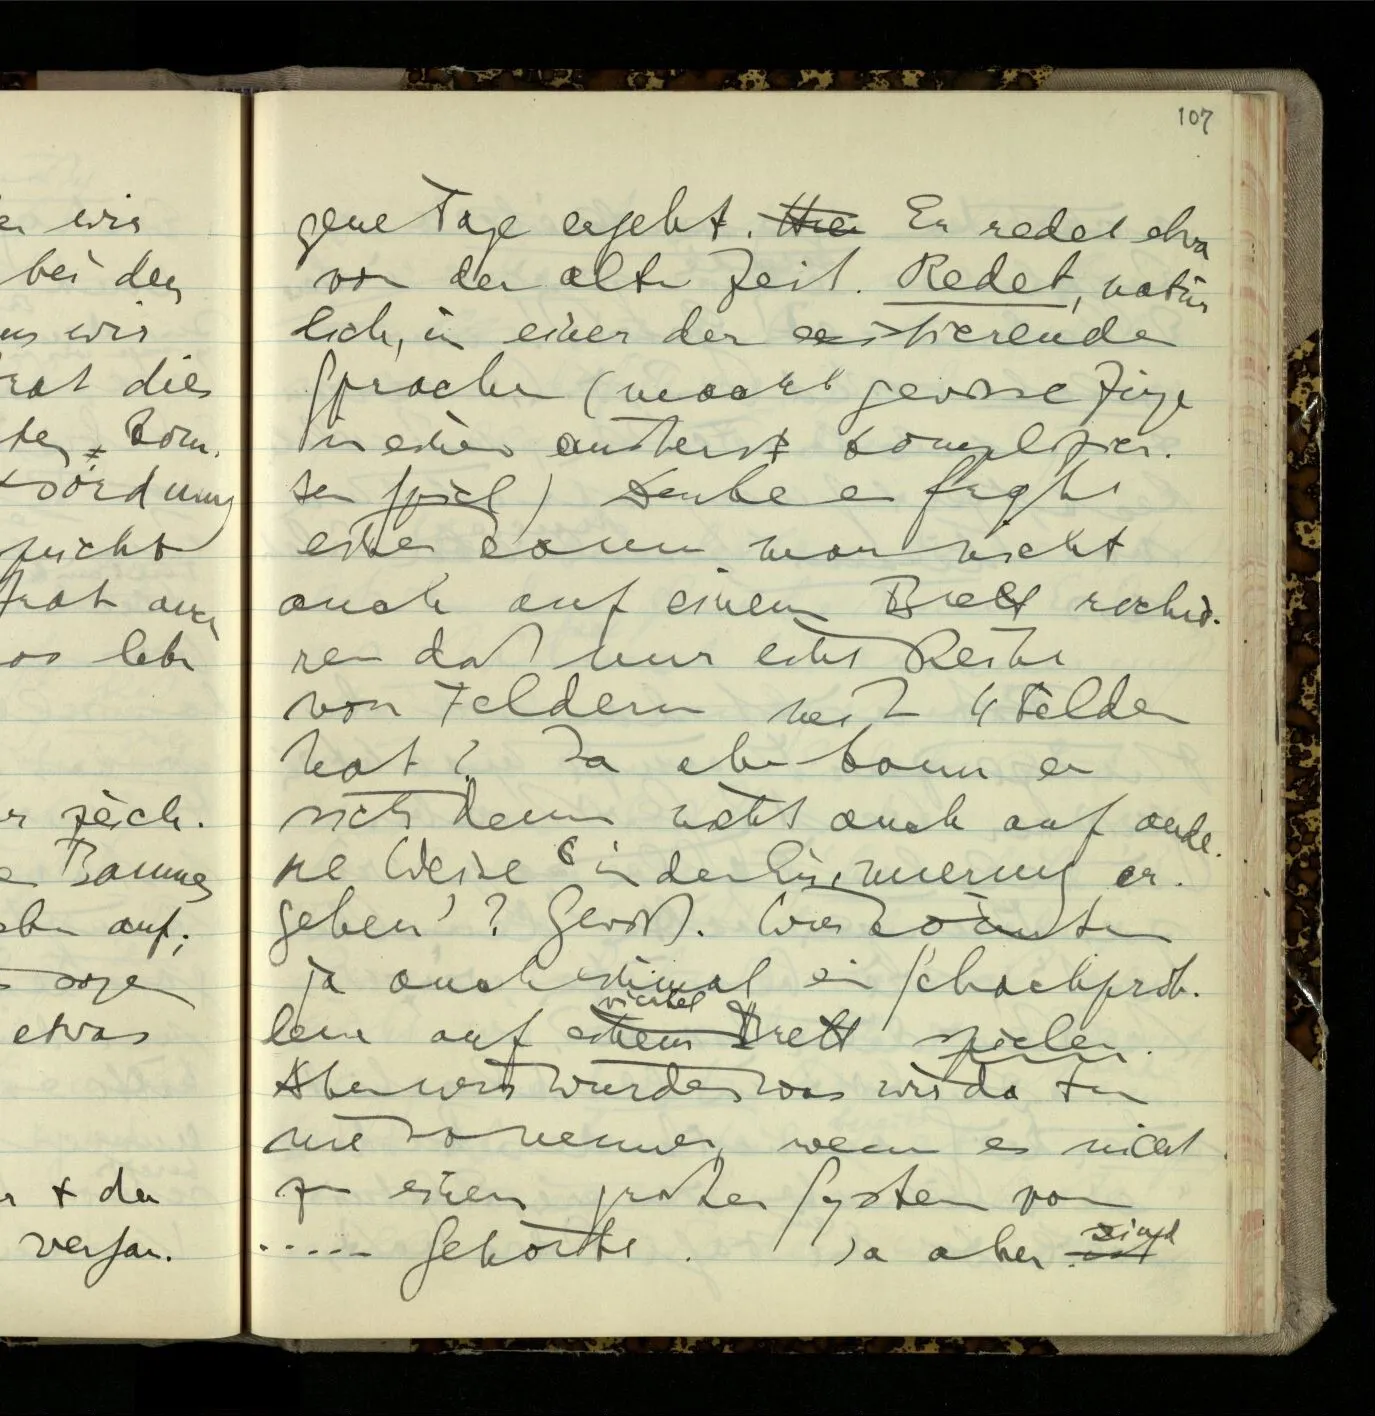 107
er wir
bei den
wir
rat dies
Kom.
ordnung
spricht
hat auch
lebe
er zeich.
Baumes
auf;
sagen
etwas
+ der
verfah.
gene Tage ergeht. Hier Er redet etwa
von der alten Zeit. Redet, natür
lich, in einer der existierenden
Sprachen (macht gewisse Züge
in einem äußerst komplizier.
ten Spiel)
einer kann man nicht
auch auf einem Brett rochie.
ren das nur eine Reihe
von Feldern mit 4 Felder
hat? Ja aber kann er
sich denn nicht auch auf ande.
re Weise 'in der Erinnerung er.
gehen'? Gewiß. Wir könnten
ja auch einmal ein Schachprob.
lem auf einem viertel Brett spielen.
Aber wir würden was wir da tun
nie so nennen, wenn es nicht
zu einem großen System von
..... gehörte. Ja aber ist sind